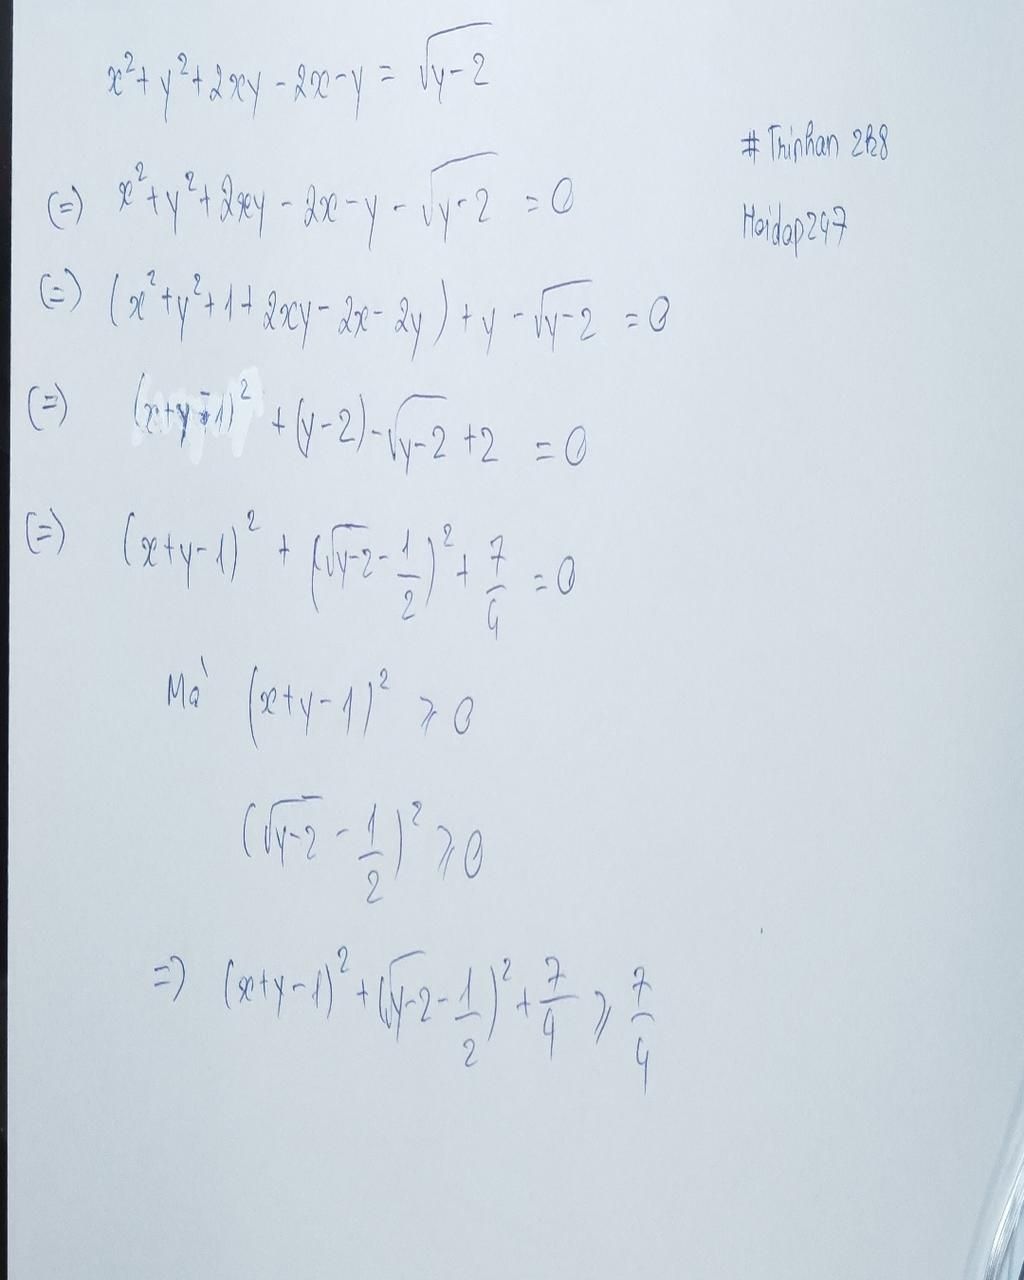 x²+y²+2xy-2x-y = √(y-2)
# Thinhan 2k8
(=) x²+y²+2xy-2x-y-√(y-2) = 0
Hoidap247
(=) (x²+y²+1+2xy-2x-2y)+y-√(y-2) = 0
(=) (x+y-1)² +(y-2)-√(y-2)+2 = 0
(=) (x+y-1)² + (√(y-2)-1/2)²+7/4 = 0
Mà (x+y-1)² ⩾ 0
(√(y-2)-1/2)² ⩾ 0
=) (x+y-1)²+(√(y-2)-1/2)²+7/4 ⩾ 7/4